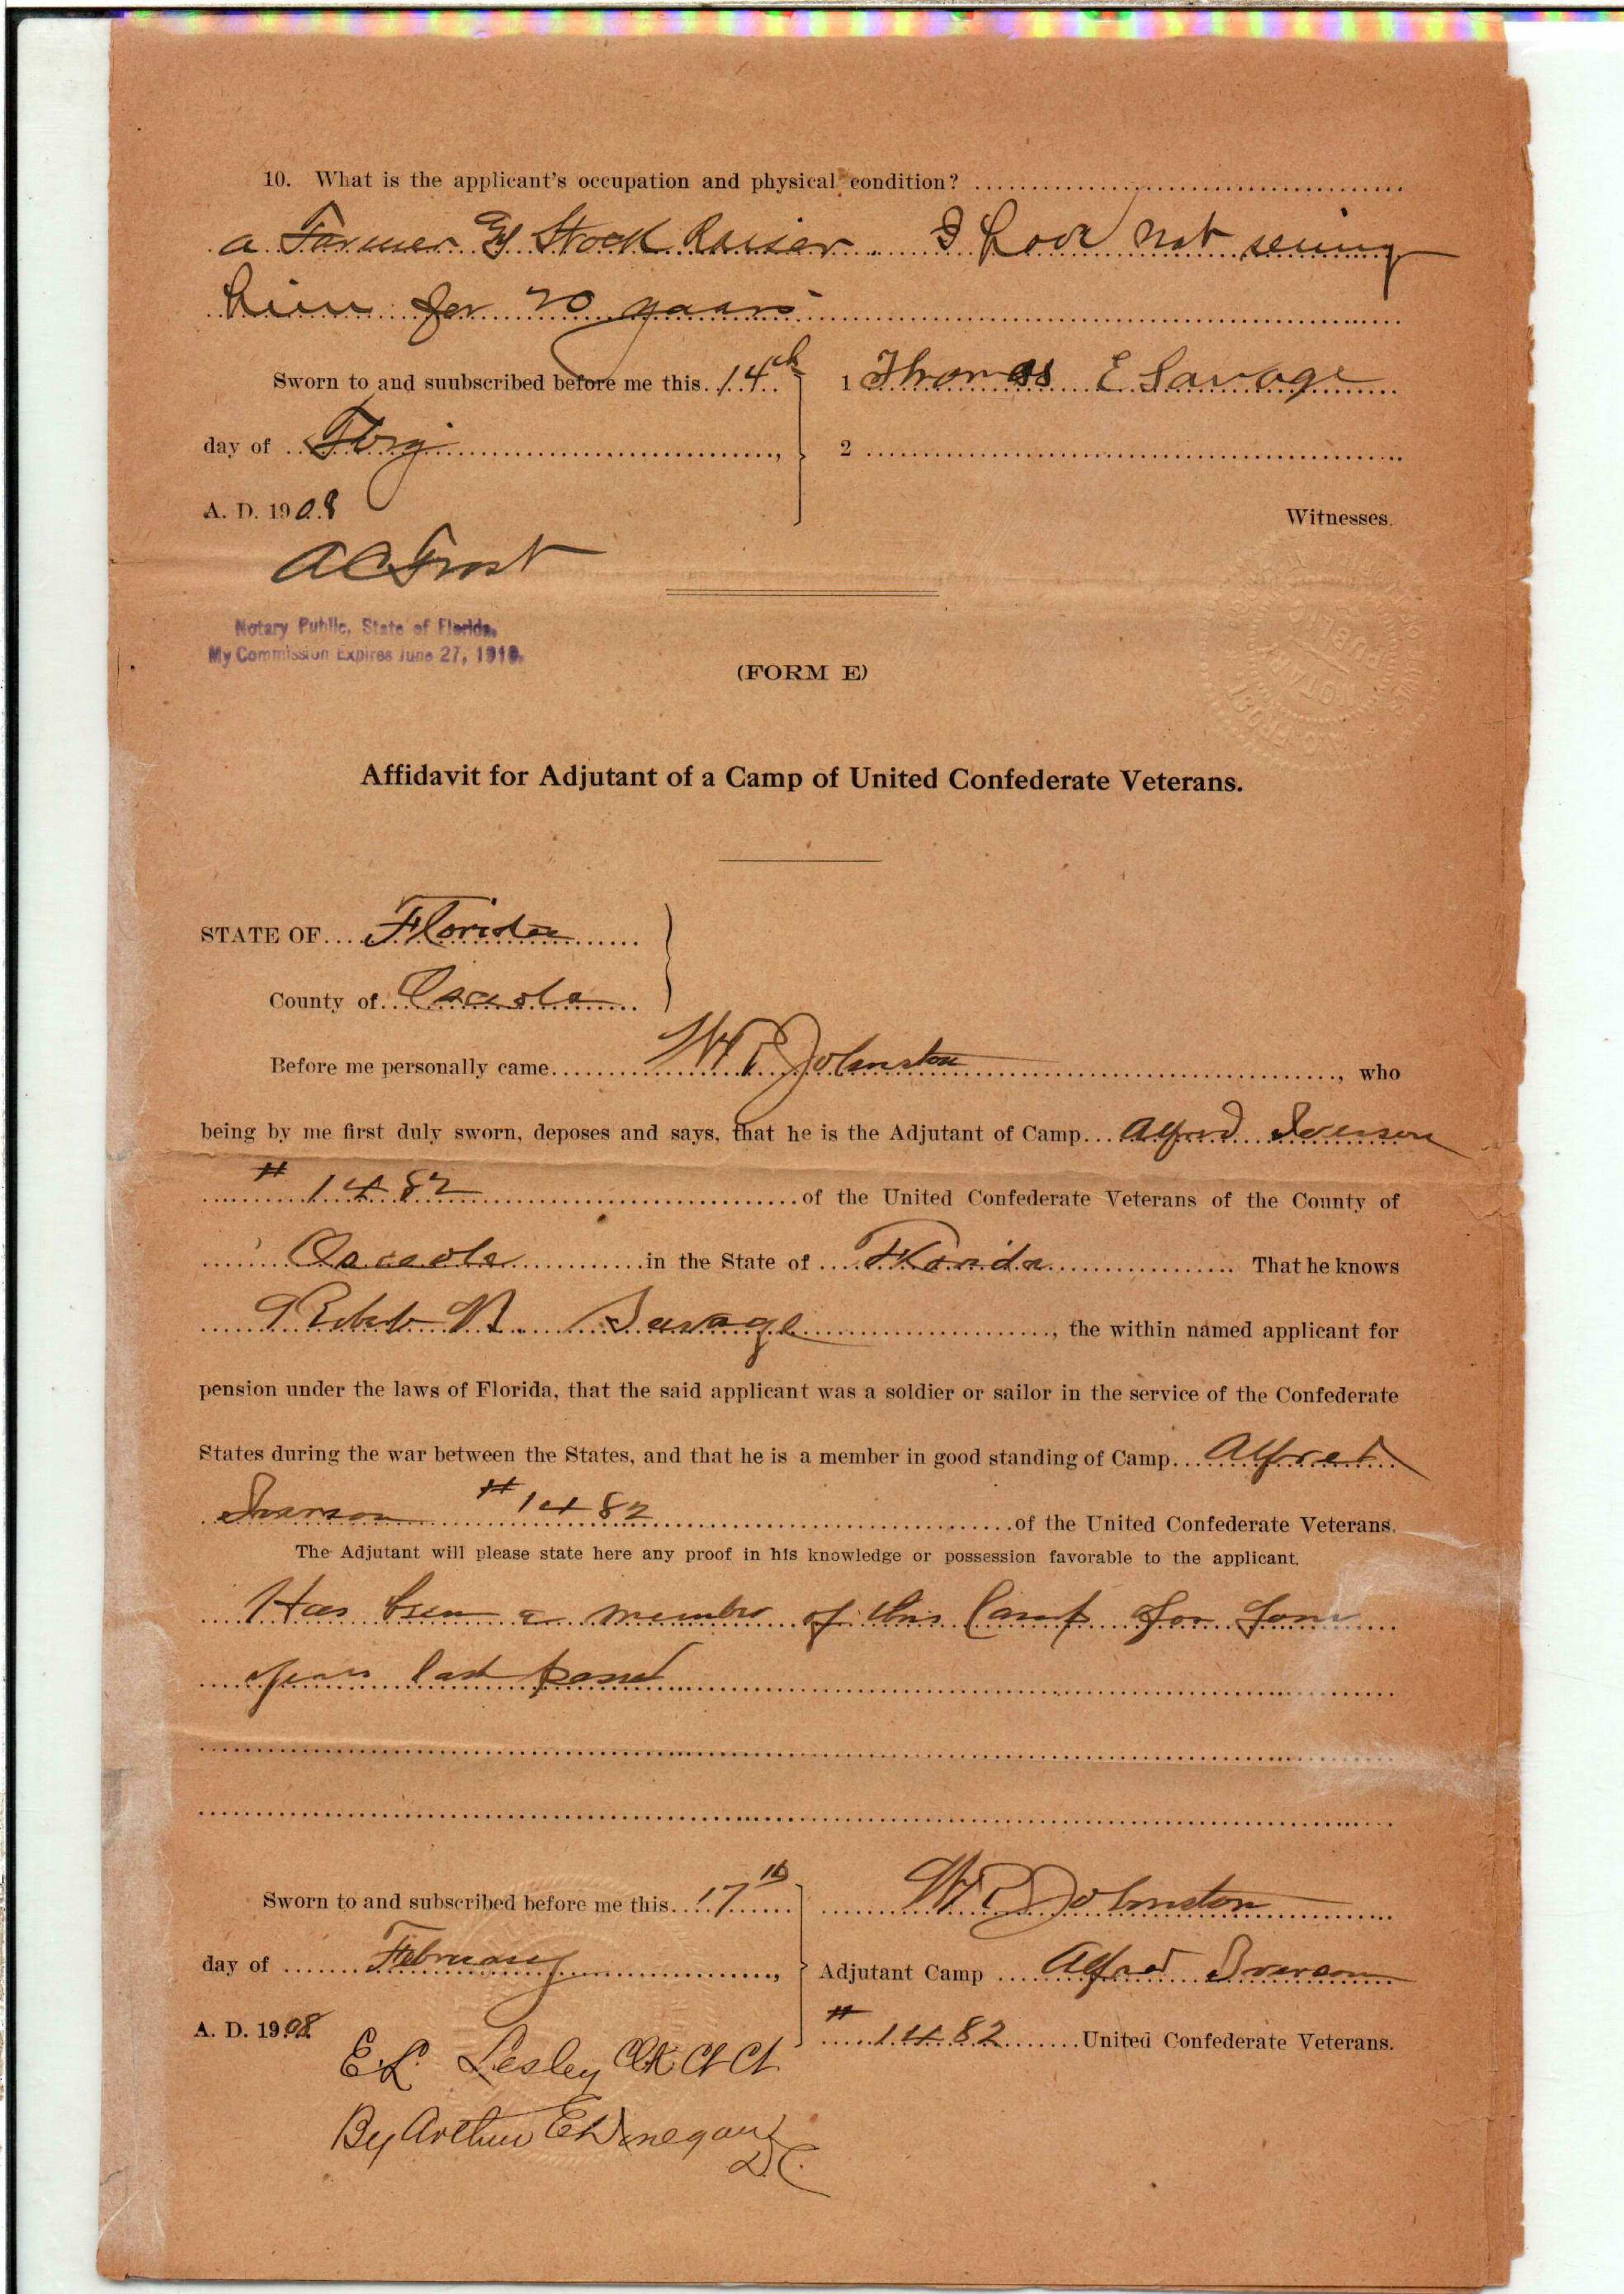 10. What is the applicant's occupation and physical condition?
a Farmer & Stock Raiser I have not seeing
him for 20 years
Sworn to and suubscribed before me this 14th
1 Thomas E Savage
day of
2
A. D. 1908
Witnesses.
A C Frost
Notary Public, State of Florida.
My Commission Expires June 27, 1910.
NOTARY PUBLIC
(FORM E)
Affidavit for Adjutant of a Camp of United Confederate Veterans.
STATE OF Florida
County of Osceola
Before me personally came W E Johnston, who
being by me first duly sworn, deposes and says, that he is the Adjutant of Camp Alfred Iverson
# 1482 of the United Confederate Veterans of the County of
Osceola in the State of Florida That he knows
Robert Savage, the within named applicant for
pension under the laws of Florida, that the said applicant was a soldier or sailor in the service of the Confederate
States during the war between the States, and that he is a member in good standing of Camp Alfred
Iverson # 1482 of the United Confederate Veterans.
The Adjutant will please state here any proof in his knowledge or possession favorable to the applicant.
Has been a member of this Camp for four
years last past
Sworn to and subscribed before me this 17th
W E Johnston
day of February,
Adjutant Camp Alfred Iverson
A. D. 1908
# 1482 United Confederate Veterans.
E. L. Lesley Clk Ct Ct
By Arthur E Donegan
D.C.